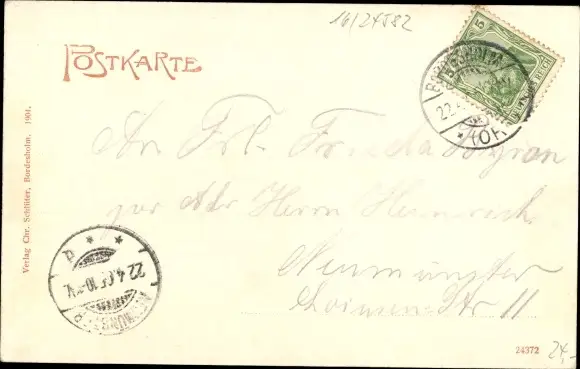 16/24582
POSTKARTE
5
BORDESHOLM
22.4
An Frl. Frieda
zur Adr Herrn Heinrich
Neumünster
Str 11
Verlag Chr. Schlüter, Bordesholm. 1904.
22.4.05.10-11V.
NEUMÜNSTER
24372
24,-